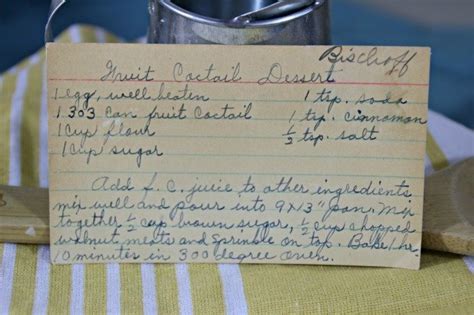 Bischoff
Fruit Coctail Dessert
1 egg, well beaten 1 tsp. soda
1 303 can fruit coctail 1 tsp. cinnamon
1 cup flour ½ tsp. salt
1 cup sugar
Add f. c. juice to other ingredients
mix well and pour into 9x13" pan. Mix
together ½ cup brown sugar, ½ cup chopped
walnut meats and sprinkle on top. Bake 1 hr.
10 minutes in 300 degree oven.